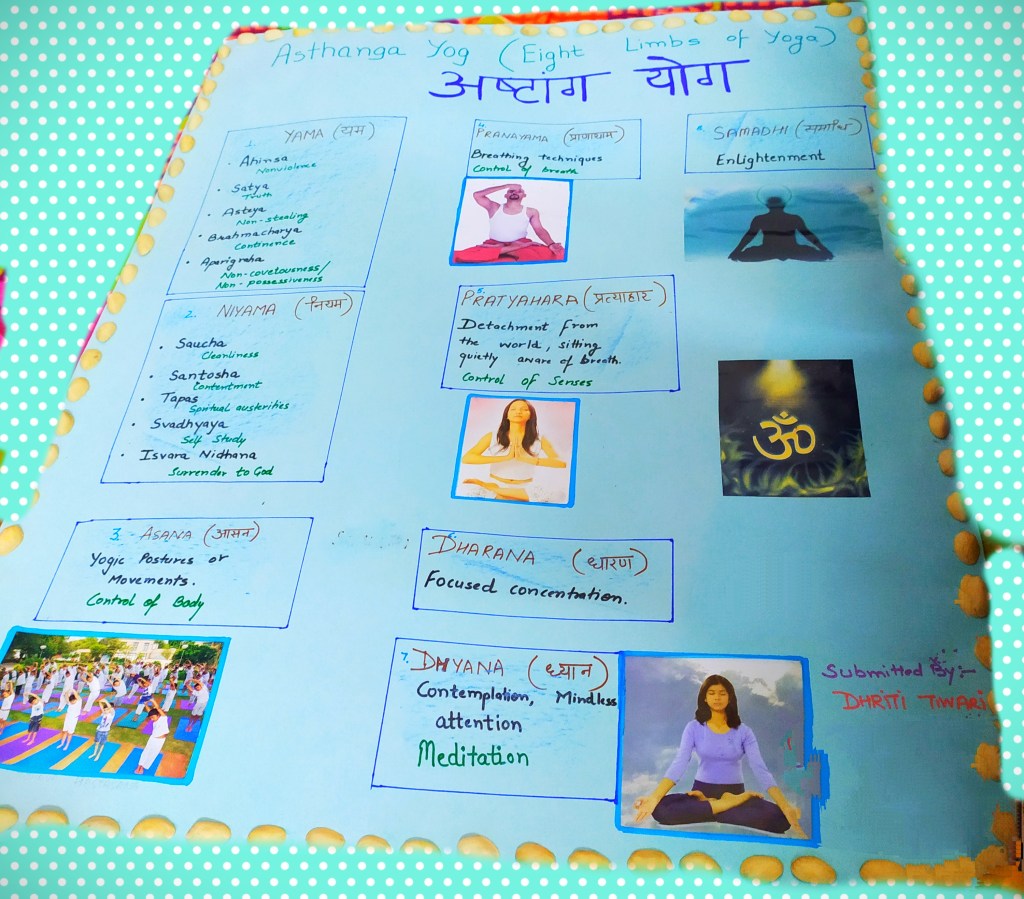 Asthanga Yog (Eight Limbs of Yoga)
अष्टांग योग
1. YAMA (यम)
• Ahinsa
Nonviolence
• Satya
Truth
• Asteya
Non-stealing
• Brahmacharya
Continence
• Aparigraha
Non-covetousness/
Non-possessiveness
2. NIYAMA (नियम)
• Saucha
Cleanliness
• Santosha
Contentment
• Tapas
Spiritual austerities
• Svadhyaya
Self Study
• Isvara Nidhana
Surrender to God
3. ASANA (आसन)
Yogic Postures or
Movements.
Control of Body
4. PRANAYAMA (प्राणायाम)
Breathing techniques
Control of breath
5. PRATYAHARA (प्रत्याहार)
Detachment from
the world, sitting
quietly aware of breath.
Control of Senses
DHARANA (धारण)
Focused concentration.
7. DHYANA (ध्यान)
Contemplation, Mindless
attention
Meditation
8. SAMADHI (समाधि)
Enlightenment
ॐ
Submitted By:-
DHRITI TIWARI